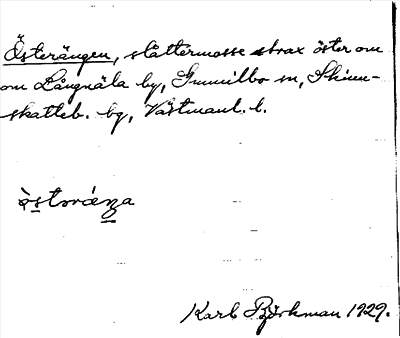 Österängen, slåttermosse strax öster om
om Långnäla by, Gunnilbo sn, Skinn-
skatteb. bg, Västmanl. l.
òstəráŋa
Karl Björkman 1929.